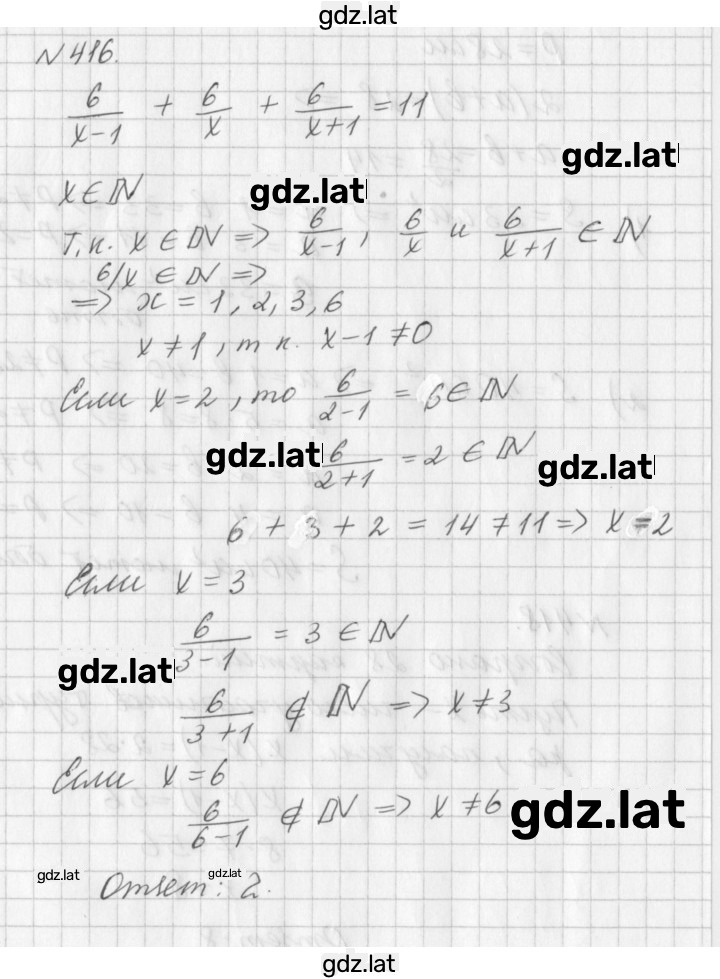 gdz.lat
№416.
6/(x-1) + 6/x + 6/(x+1) = 11
gdz.lat
x ∈ ℕ gdz.lat
т.к. x ∈ ℕ => 6/(x-1), 6/x и 6/(x+1) ∈ ℕ
6/x ∈ ℕ =>
=> x = 1, 2, 3, 6
x ≠ 1, т к. x-1 ≠ 0
Если x=2, то 6/(2-1) = 6 ∈ ℕ
gdz.lat 6/(2+1) = 2 ∈ ℕ gdz.lat
6 + 3 + 2 = 14 ≠ 11 => x = 2
Если x = 3
6/(3-1) = 3 ∈ ℕ
gdz.lat
6/(3+1) ∉ ℕ => x ≠ 3
Если x = 6
6/(6-1) ∉ ℕ => x ≠ 6 gdz.lat
gdz.lat gdz.lat
Ответ: 2.
gdz.lat